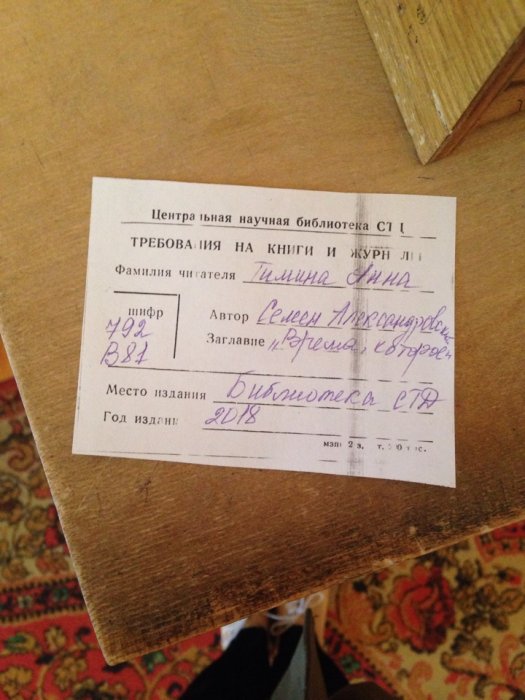 Центральная научная библиотека СТД
ТРЕБОВАНИЯ НА КНИГИ И ЖУРНАЛЫ
Фамилия читателя Тимина Анна
шифр
792
В81
Автор Семен Александровский
Заглавие „Время, которое
Место издания Библиотека СТД
Год издания 2018